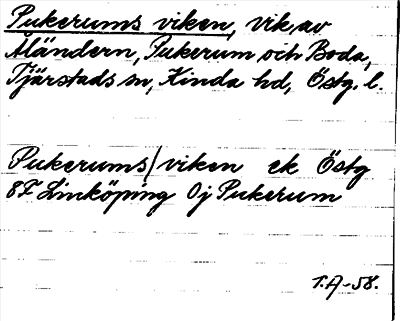 Pukerums viken, vik av
Åländern, Pukerum och Boda,
Tjärstads sn, Kinda hd, Östg. l.
Pukerums/viken ek Östg
8F Linköping 0j Pukerum
T.A-58.